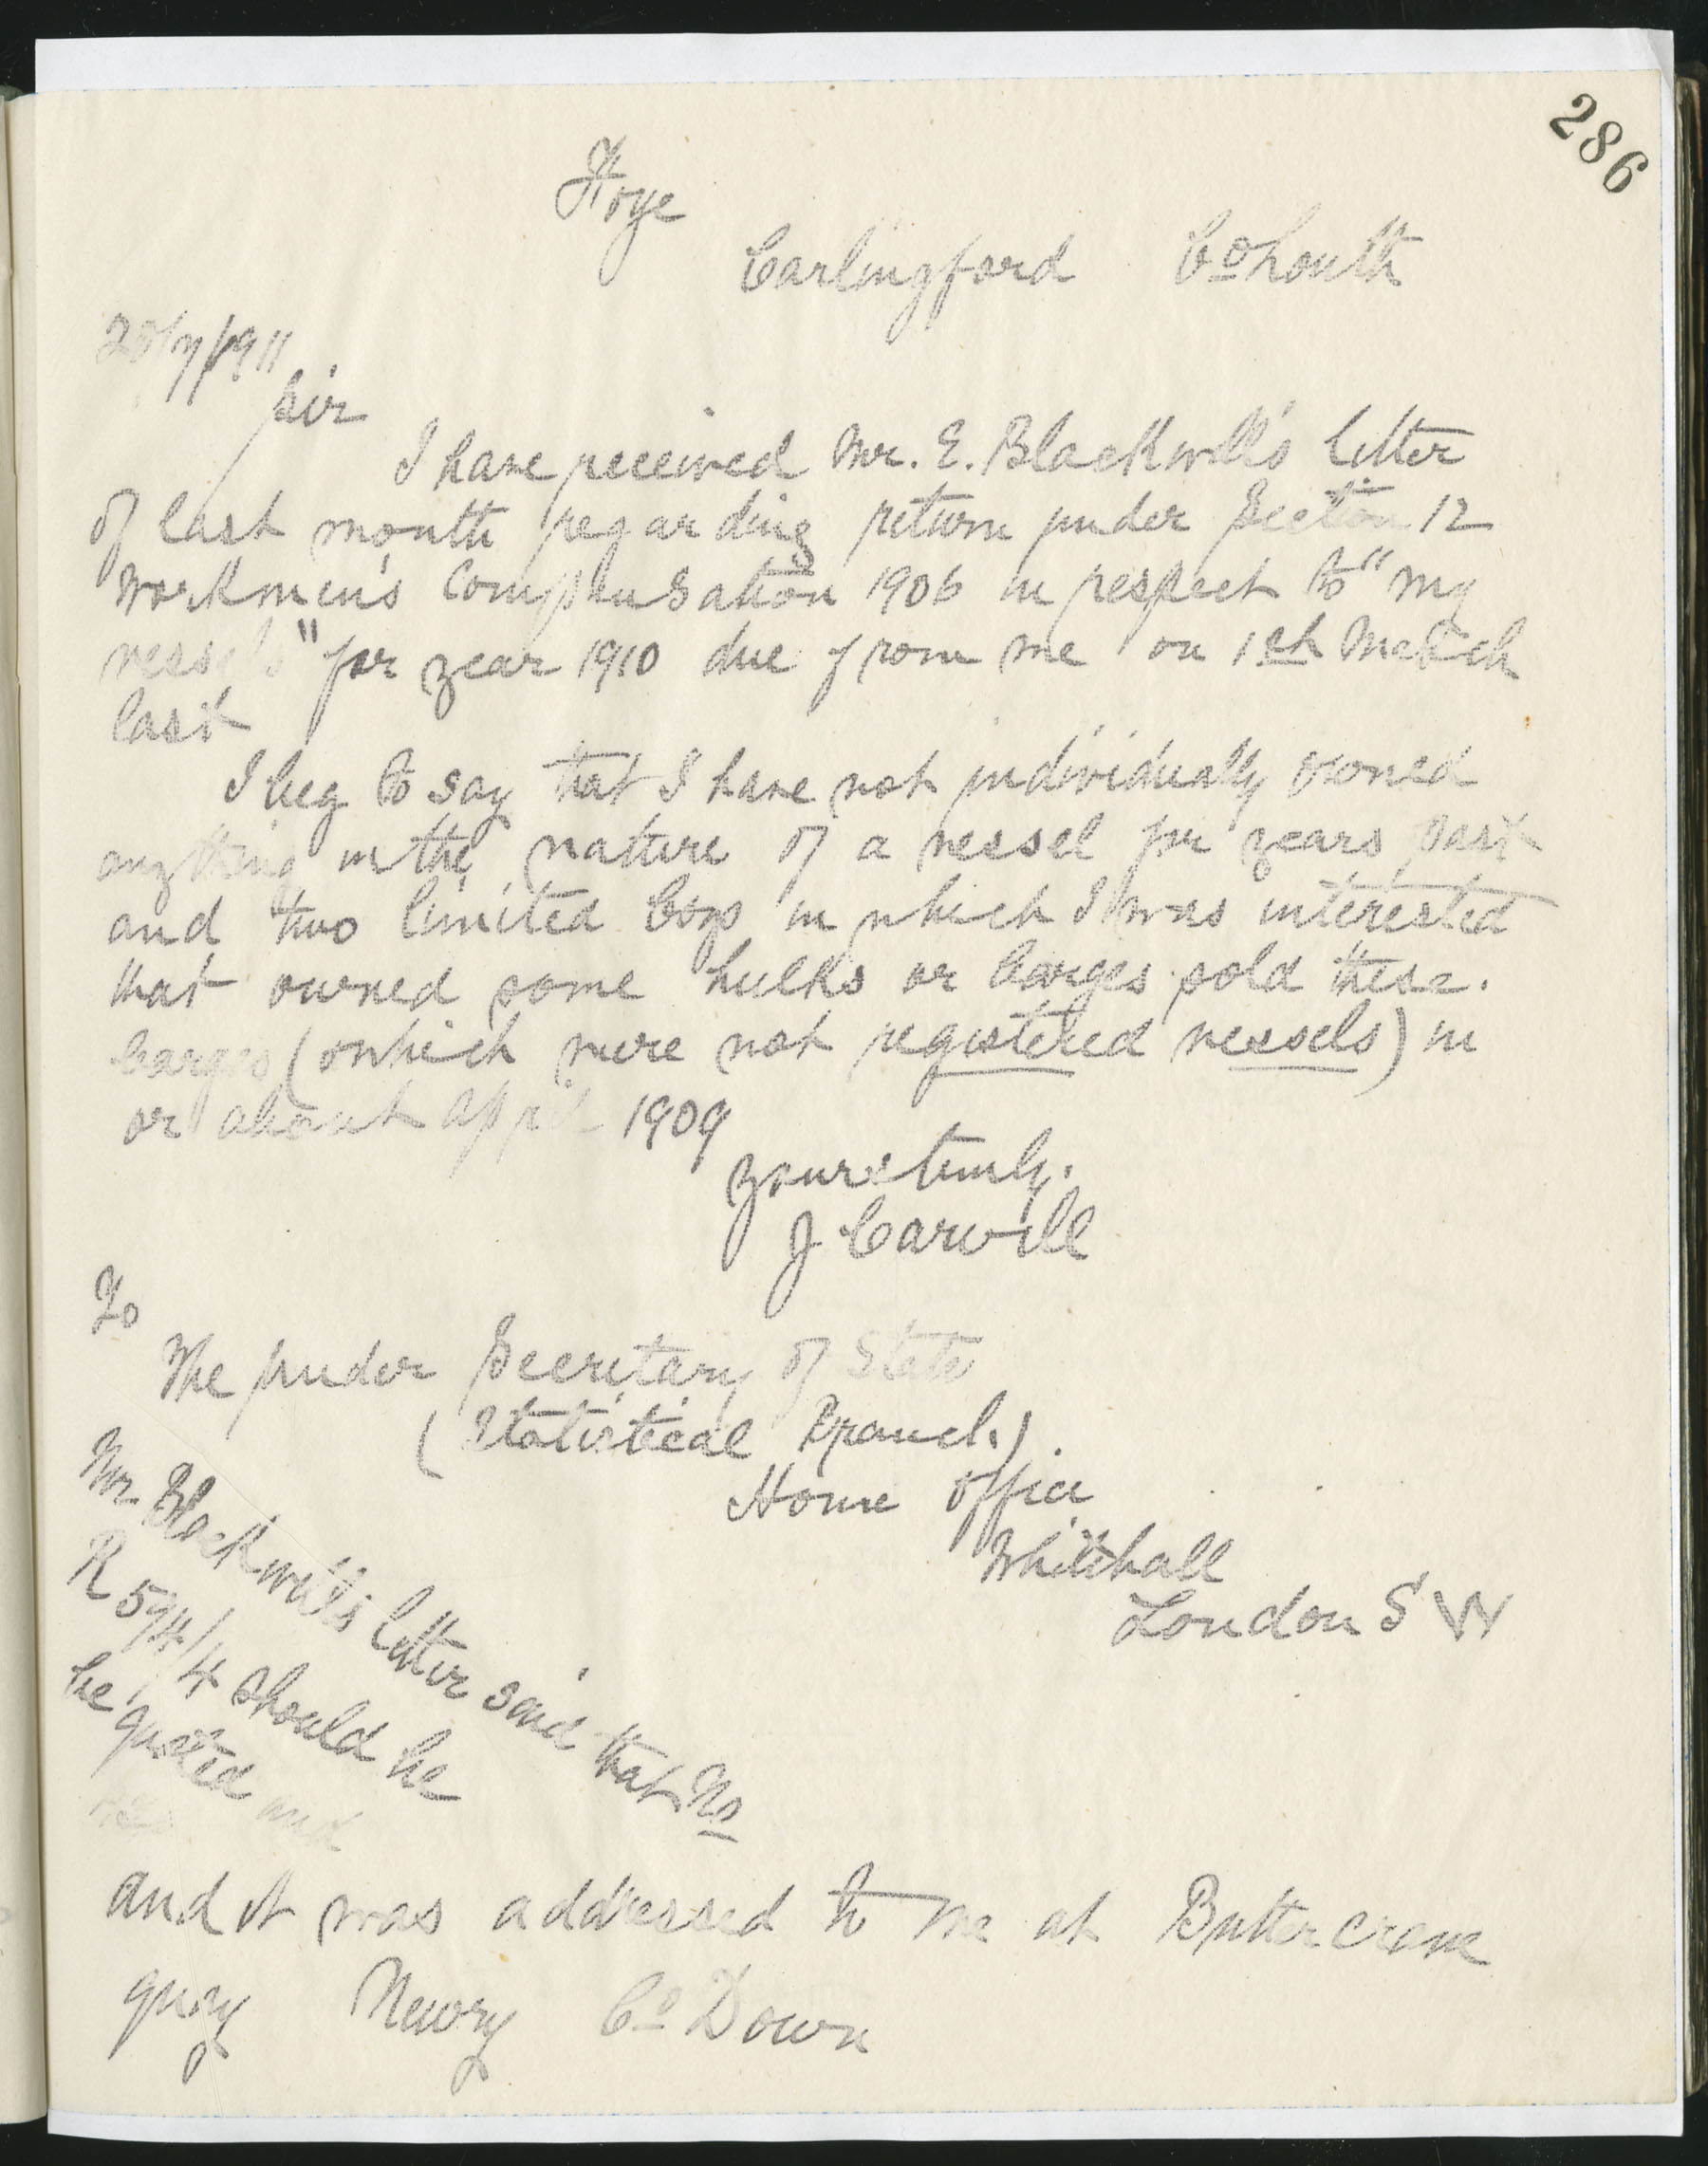 286
Carlingford Co Louth
/7/1911
Sir
I have received Mr. E. Blackwell's letter
of last month regarding return under Section 12
Workmen's Compensation 1906 in respect to "my
vessels" for year 1910 due from me on 1st March
last
I beg to say that I have not individually owned
anything in the nature of a vessel for years past
and two limited Coys in which I was interested
that owned some hulks or barges sold these.
barges (which were not registered vessels) in
or about April 1909
Yours truly.
J Carvill
To
The Under Secretary of State
(Statistical Branch).
Home Office
Whitehall
London S W
Mr Blackwell's letter said that No
R 594/4 should be
be quoted and
and it was addressed to me at Buttercrane
quay Newry Co Down